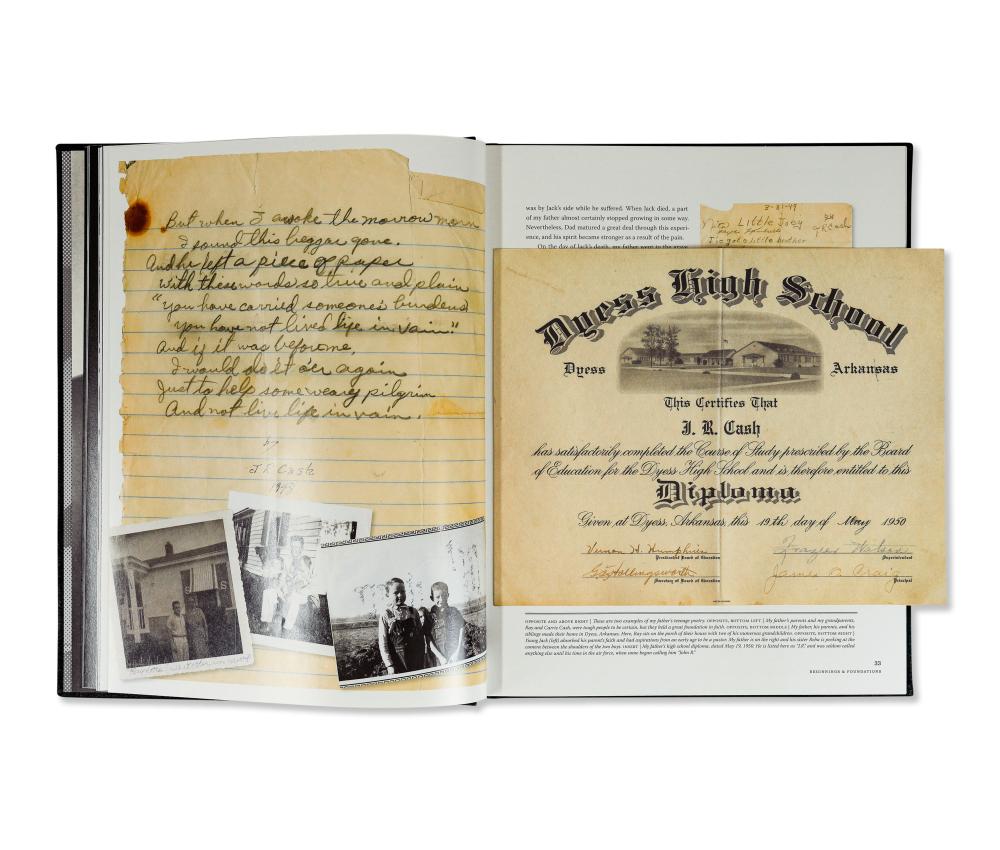 But when I awoke the morrow morn
I found this beggar gone.
And he left a piece of paper
With these words so live and plain
"You have carried someones burdens
You have not lived life in vain"
And if it was before me,
I would do it o'er again
Just to help some weary pilgrim
And not live life in vain.
by
J.R. Cash
was by Jack's side while he suffered. When Jack died, a part
of my father almost certainly stopped growing in some way.
Nevertheless, Dad matured a great deal through this experi-
ence, and his spirit became stronger as a result of the pain.
On the day of Jack's death, my father went to the
3-21-49
Little Joey
I've got a little brother
Dyess High School
Dyess Arkansas
This Certifies That
J. R. Cash
has satisfactorily completed the Course of Study prescribed by the Board
of Education for the Dyess High School and is therefore entitled to this
Diploma
Given at Dyess, Arkansas, this 19th day of May 1950
Vernon H. Humphries
President Board of Education
Superintendent
Hollingsworth
Secretary of Board of Education
James R. Craig
Principal
OPPOSITE AND ABOVE RIGHT | These are two examples of my father's teenage poetry. OPPOSITE, BOTTOM LEFT | My father's parents and my grandparents,
Ray and Carrie Cash, were tough people to be certain, but they held a great foundation in faith. OPPOSITE, BOTTOM MIDDLE | My father, his parents, and his
siblings made their home in Dyess, Arkansas. Here, Ray sits on the porch of their house with two of his numerous grandchildren. OPPOSITE, BOTTOM RIGHT |
Young Jack (left) absorbed his parent's faith and had aspirations from an early age to be a pastor. My father is on the right and his sister Reba is peeking at the
camera between the shoulders of the two boys. INSERT | My father's high school diploma, dated May 19, 1950. He is listed here as "J.R." and was seldom called
anything else until his time in the air force, when some began calling him "John R."
33
BEGINNINGS & FOUNDATIONS